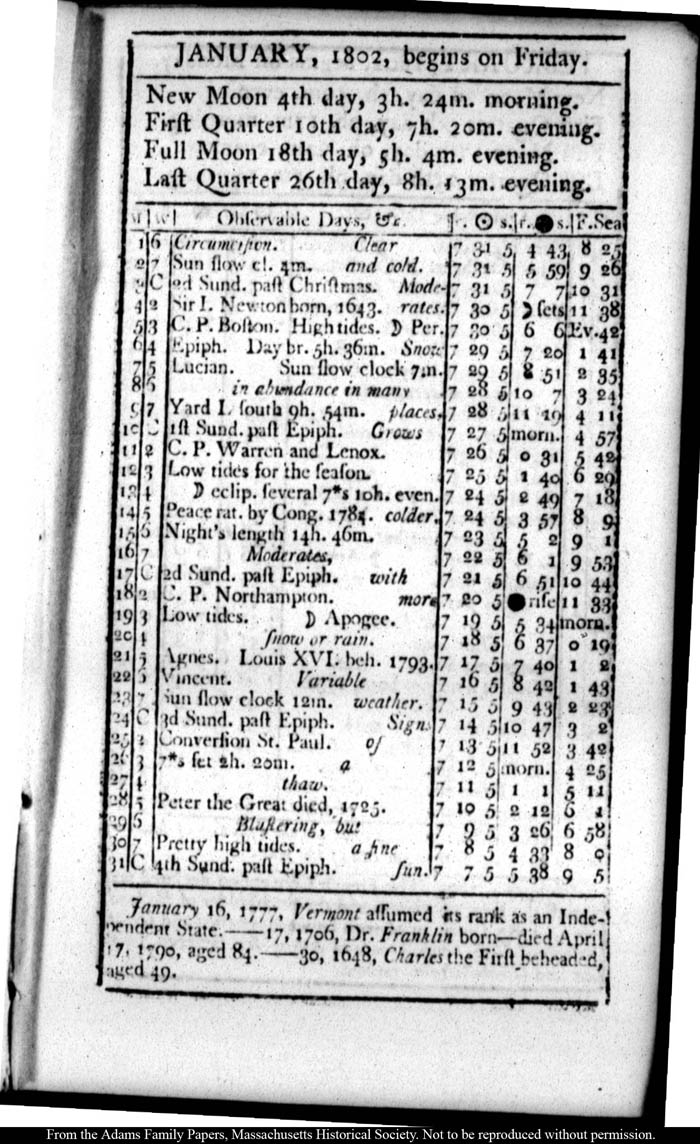 JANUARY, 1802, begins on Friday.
New Moon 4th day, 3h. 24m. morning.
Firſt Quarter 10th day, 7h. 20m. evening.
Full Moon 18th day, 5h. 4m. evening.
Laſt Quarter 26th day, 8h. 13m. evening.
M W Obſervable Days, &c. r. ☉ s. r. ● s. F.Sea
1 6 Circumciſion. Clear 7 31 5 4 43 8 25
2 7 Sun ſlow cl. 4m. and cold. 7 31 5 5 59 9 26
3 C 2d Sund. paſt Chriſtmas. Mode- 7 31 5 7 7 10 31
4 2 Sir I. Newton born, 1643. rates. 7 30 5 ☽ ſets 11 38
5 3 C. P. Boſton. High tides. ☽ Per. 7 30 5 6 6 Ev. 42
6 4 Epiph. Day br. 5h. 36m. Snow 7 29 5 7 20 1 41
7 5 Lucian. Sun ſlow clock 7m. 7 29 5 8 51 2 35
8 6 in abundance in many 7 28 5 10 7 3 24
9 7 Yard L ſouth 9h. 54m. places. 7 28 5 11 19 4 11
10 C 1ſt Sund. paſt Epiph. Grows 7 27 5 morn. 4 57
11 2 C. P. Warren and Lenox. 7 26 5 0 31 5 42
12 3 Low tides for the ſeaſon. 7 25 5 1 40 6 29
13 4 ☽ eclip. ſeveral 7*s 10h. even. 7 24 5 2 49 7 18
14 5 Peace rat. by Cong. 1784. colder. 7 24 5 3 57 8 9
15 6 Night's length 14h. 46m. 7 23 5 5 2 9 1
16 7 Moderates, 7 22 5 6 1 9 53
17 C 2d Sund. paſt Epiph. with 7 21 5 6 51 10 44
18 2 C. P. Northampton. more 7 20 5 ● riſe 11 33
19 3 Low tides. ☽ Apogee. 7 19 5 5 34 morn.
20 4 ſnow or rain. 7 18 5 6 37 0 19
21 5 Agnes. Louis XVI. beh. 1793. 7 17 5 7 40 1 2
22 6 Vincent. Variable 7 16 5 8 42 1 43
23 7 Sun ſlow clock 12m. weather. 7 15 5 9 43 2 23
24 C 3d Sund. paſt Epiph. Signs 7 14 5 10 47 3 2
25 2 Converſion St. Paul. of 7 13 5 11 52 3 42
26 3 7*s ſet 2h. 20m. a 7 12 5 morn. 4 25
27 4 thaw. 7 11 5 1 1 5 11
28 5 Peter the Great died, 1725. 7 10 5 2 12 6 1
29 6 Bluſtering, but 7 9 5 3 26 6 58
30 7 Pretty high tides. a fine 7 8 5 4 33 8 0
31 C 4th Sund. paſt Epiph. ſun. 7 7 5 5 38 9 5
January 16, 1777, Vermont aſſumed its rank as an Inde-
pendent State.——17, 1706, Dr. Franklin born—died April
17, 1790, aged 84.——30, 1648, Charles the Firſt beheaded,
aged 49.
From the Adams Family Papers, Massachusetts Historical Society. Not to be reproduced without permission.